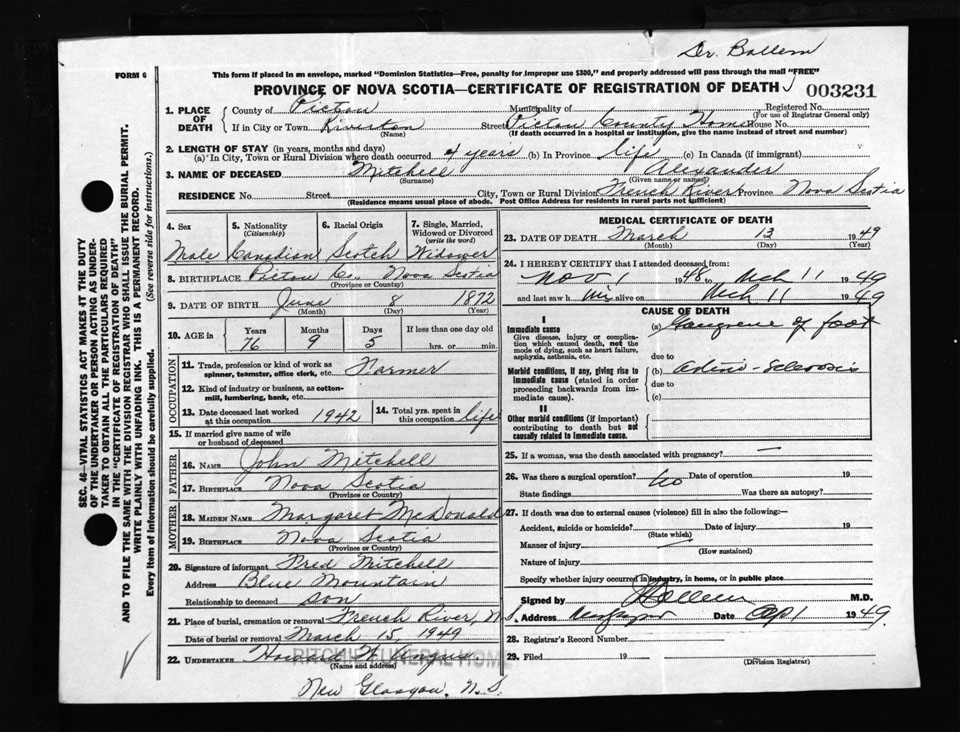 Dr. Ballem
FORM 6
This form if placed in an envelope, marked "Dominion Statistics—Free, penalty for improper use $300," and properly addressed will pass through the mail "FREE"
PROVINCE OF NOVA SCOTIA—CERTIFICATE OF REGISTRATION OF DEATH
003231
1. PLACE OF DEATH
County of Pictou Municipality of Registered No.
(For use of Registrar General only)
If in City or Town Riverton Street Pictou County Home House No.
(Name) (If death occurred in a hospital or institution, give the name instead of street and number)
2. LENGTH OF STAY (in years, months and days)
(a) In City, Town or Rural Division where death occurred 4 years (b) In Province life (c) In Canada (if immigrant)
3. NAME OF DECEASED Mitchell Alexander
(Surname) (Given name or names)
RESIDENCE No. Street City, Town or Rural Division French River Province Nova Scotia
(Residence means usual place of abode. Post Office Address for residents in rural parts not sufficient)
4. Sex 5. Nationality (Citizenship) 6. Racial Origin 7. Single, Married, Widowed or Divorced (write the word)
Male Canadian Scotch Widower
8. BIRTHPLACE Pictou Co., Nova Scotia
(Province or Country)
9. DATE OF BIRTH June 8 1872
(Month) (Day) (Year)
10. AGE in Years Months Days If less than one day old
76 9 5 hrs. or min.
OCCUPATION
11. Trade, profession or kind of work as spinner, teamster, office clerk, etc. Farmer
12. Kind of industry or business, as cotton-mill, lumbering, bank, etc.
13. Date deceased last worked at this occupation 1942
14. Total yrs. spent in this occupation life
15. If married give name of wife or husband of deceased
FATHER
16. NAME John Mitchell
17. BIRTHPLACE Nova Scotia
(Province or Country)
MOTHER
18. MAIDEN NAME Margaret McDonald
19. BIRTHPLACE Nova Scotia
(Province or Country)
20. Signature of informant Fred Mitchell
Address Blue Mountain
Relationship to deceased son
21. Place of burial, cremation or removal French River, N.S.
Date of burial or removal March 15, 1949
22. UNDERTAKER Howard W. Angus
(Name and address)
RITCHIE FUNERAL HOME
New Glasgow, N.S.
MEDICAL CERTIFICATE OF DEATH
23. DATE OF DEATH March 13 1949
(Month) (Day) (Year)
24. I HEREBY CERTIFY that I attended deceased from:
Nov 1 1948 to Mch 11 1949
and last saw him alive on Mch 11 1949
CAUSE OF DEATH
I
Immediate cause
Give disease, injury or complication which caused death, not the mode of dying, such as heart failure, asphyxia, asthenia, etc.
(a) Gangrene of foot
due to
Morbid conditions, if any, giving rise to immediate cause (stated in order proceeding backwards from immediate cause).
(b) arterio-sclerosis
due to
(c)
II
Other morbid conditions (if important) contributing to death but not causally related to immediate cause.
25. If a woman, was the death associated with pregnancy? —
26. Was there a surgical operation? no Date of operation 19
State findings Was there an autopsy?
27. If death was due to external causes (violence) fill in also the following:—
Accident, suicide or homicide? Date of injury 19
(State which)
Manner of injury
(How sustained)
Nature of injury
Specify whether injury occurred in industry, in home, or in public place
Signed by Ballem M.D.
Address Date Apl 1949
28. Registrar's Record Number
29. Filed 19
(Division Registrar)
SEC. 46—VITAL STATISTICS ACT MAKES IT THE DUTY
OF THE UNDERTAKER OR PERSON ACTING AS UNDERTAKER TO OBTAIN ALL THE PARTICULARS REQUIRED
IN THE "CERTIFICATE OF REGISTRATION OF DEATH"
AND TO FILE THE SAME WITH THE DIVISION REGISTRAR WHO SHALL ISSUE THE BURIAL PERMIT.
WRITE PLAINLY WITH UNFADING INK. THIS IS A PERMANENT RECORD.
Every item of information should be carefully supplied. (See reverse side for instructions.)